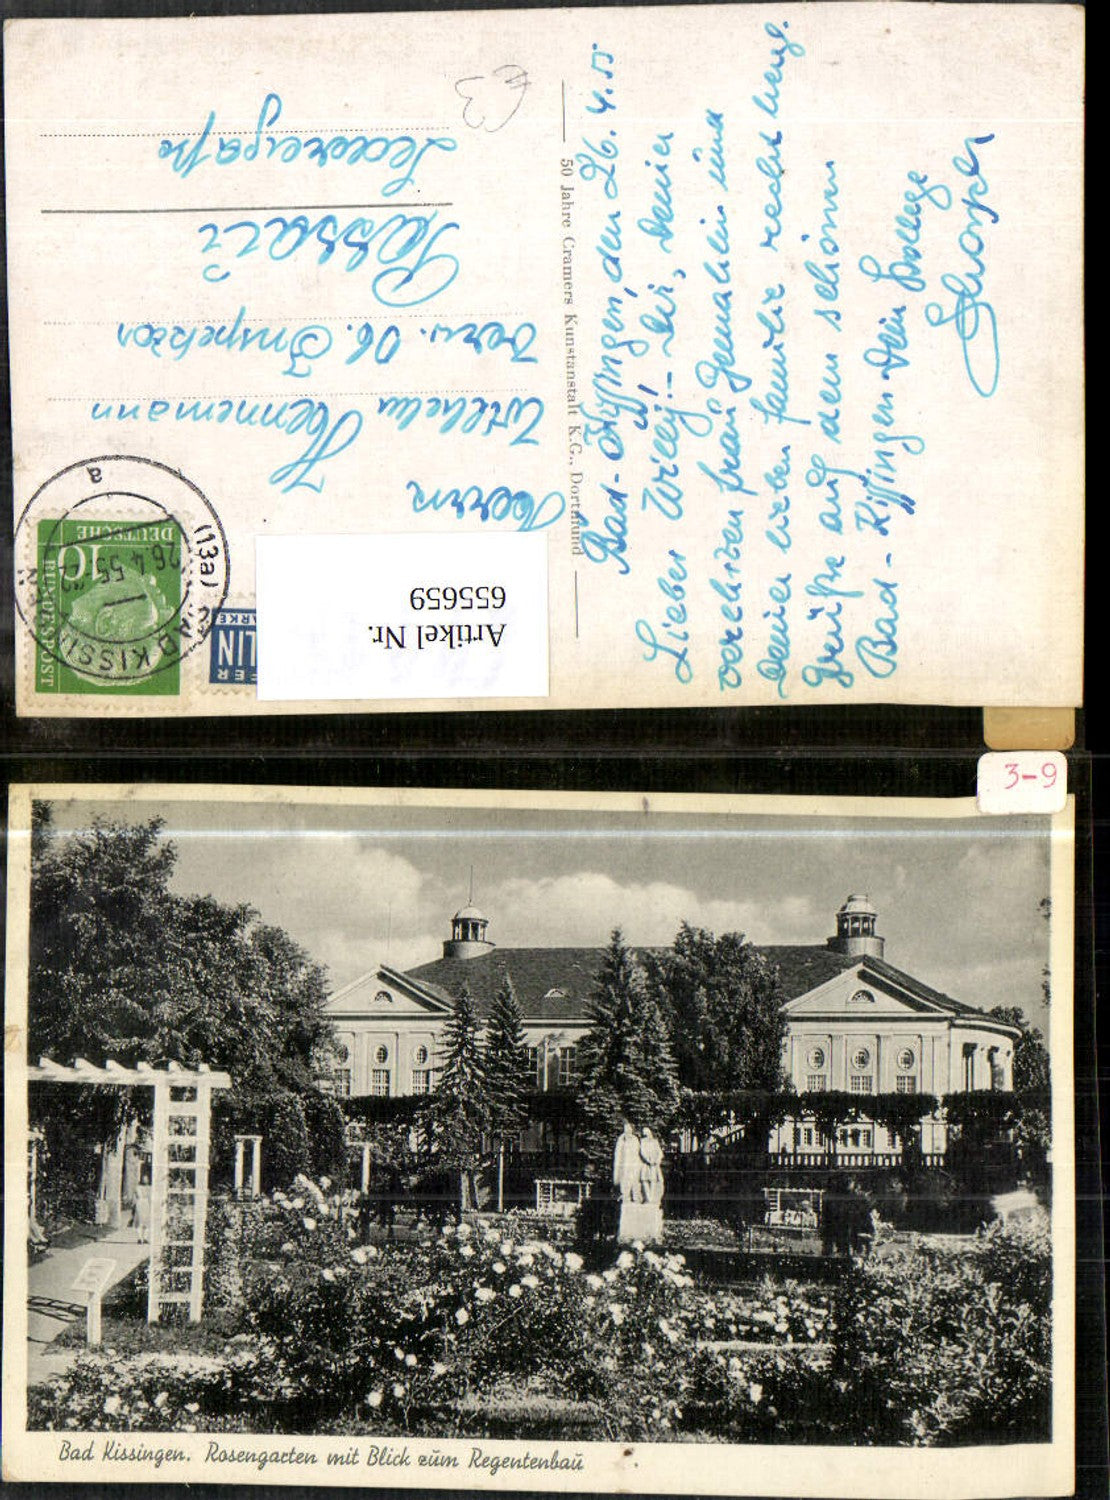 Bad-Kissingen, den 26.4.55
Lieber Willy! - Dir, Deiner
verehrten Frau Gemahlin und
Deiner lieben Familie recht herzl.
Grüße aus dem schönen
Bad-Kissingen Dein Kollege
50 Jahre Cramers Kunstanstalt K.G., Dortmund
Herrn
Wilhelm Hennemann
Verw. Ob. Inspektor
Passau
Lederergasse
€3
DEUTSCHE
BUNDESPOST
10
(13a) BAD KISSINGEN
26.4.55-12
a
Artikel Nr.
655659
3-9
Bad Kissingen. Rosengarten mit Blick zum Regentenbau